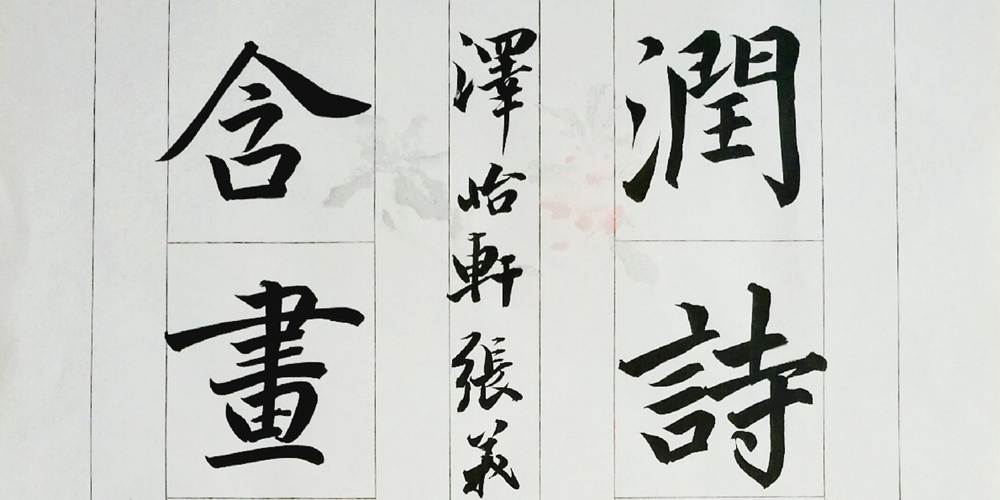 潤詩
澤怡軒張義
含畫